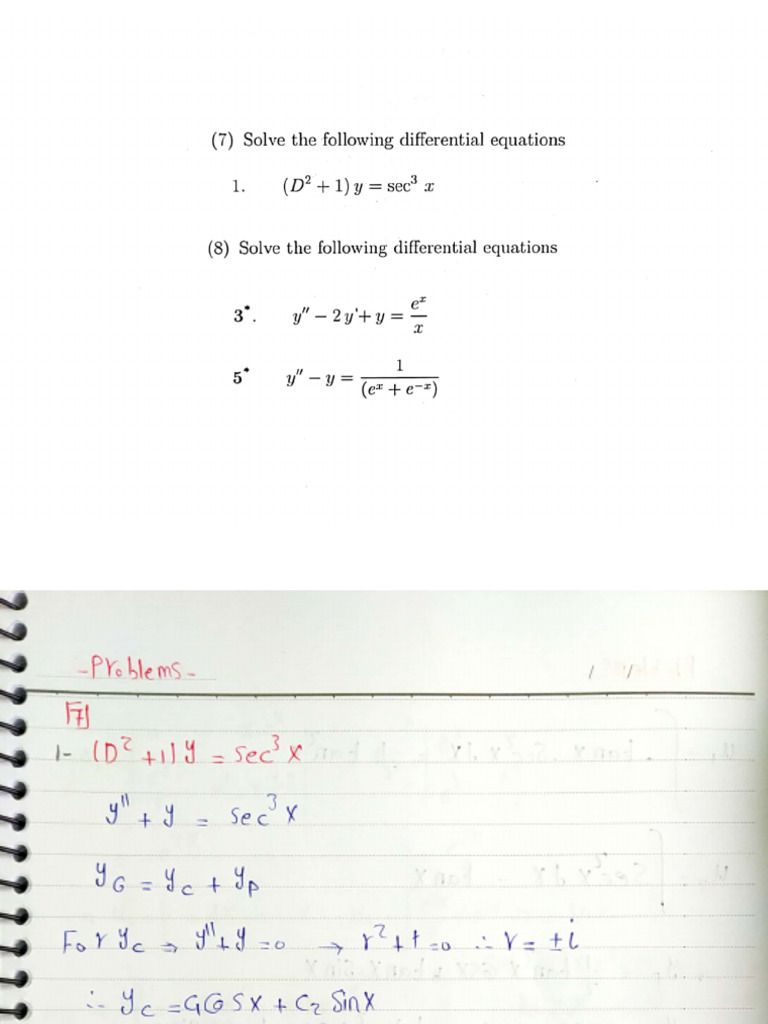 (7) Solve the following differential equations
1. (D² + 1) y = sec³ x
(8) Solve the following differential equations
3*. y″ − 2 y'+ y = eˣ/x
5* y″ − y = 1/(eˣ + e⁻ˣ)
-Problems-
7
1- (D² +1) y = sec³ x
y" + y = sec³ x
y_G = y_c + y_p
For y_c ⇒ y"+y=0 → r²+1=0 ∴ r = ±i
∴ y_c = C₁ Cos x + C₂ Sin x